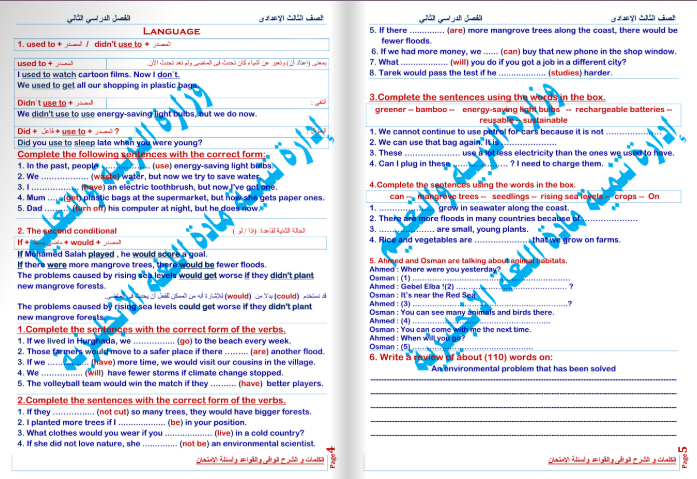 الصف الثالث الإعدادى الفصل الدراسي الثاني
LANGUAGE
1. used to + المصدر / didn't use to + المصدر
used to + المصدر بمعنى (اعتاد أن) وتعبر عن أشياء كان تحدث فى الماضى ولم تعد تحدث الآن.
I used to watch cartoon films. Now I don`t.
We used to get all our shopping in plastic bags.
Didn`t use to + المصدر للنفي :
We didn't use to use energy-saving light bulbs, but we do now.
Did + فاعل + use to + المصدر ?
Did you use to sleep late when you were young?
Complete the following sentences with the correct form:
1. In the past, people ............... (use) energy-saving light bulbs.
2. We ............... (waste) water, but now we try to save water.
3. I ............... (have) an electric toothbrush, but now I've got one.
4. Mum ..... (get) plastic bags at the supermarket, but now she gets paper ones.
5. Dad ........ (turn off) his computer at night, but he does now.
2. The second conditional الحالة الثانية لقاعدة (إذا / لو )
If + ماضي بسيط + would + المصدر
If Mohamed Salah played , he would score a goal.
If there were more mangrove trees, there would be fewer floods.
The problems caused by rising sea levels would get worse if they didn't plant
new mangrove forests.
قد نستخدم (could) بدلا من (would) للإشارة
The problems caused by rising sea levels could get worse if they didn't plant
new mangrove forests.
1.Complete the sentences with the correct form of the verbs.
1. If we lived in Hurghada, we ............ (go) to the beach every week.
2. Those farmers would move to a safer place if there ........ (are) another flood.
3. If we ........ (have) more time, we would visit our cousins in the village.
4. We ............ (will) have fewer storms if climate change stopped.
5. The volleyball team would win the match if they .......... (have) better players.
2.Complete the sentences with the correct form of the verbs.
1. If they .............. (not cut) so many trees, they would have bigger forests.
2. I planted more trees if I ................ (be) in your position.
3. What clothes would you wear if you ................ (live) in a cold country?
4. If she did not love nature, she ............ (not be) an environmental scientist.
الكلمات و الشرح الوافى والقواعد وأسئلة الإمتحان
Page4
الصف الثالث الإعدادى الفصل الدراسي الثاني
5. If there ............. (are) more mangrove trees along the coast, there would be
fewer floods.
6. If we had more money, we ...... (can) buy that new phone in the shop window.
7. What ............... (will) you do if you got a job in a different city?
8. Tarek would pass the test if he .................. (studies) harder.
3.Complete the sentences using the words in the box.
greener -- bamboo -- energy-saving light bulbs -- rechargeable batteries --
reusable -- sustainable
1. We cannot continue to use petrol for cars because it is not ....................
2. We can use that bag again. It is ..................
3. These ................ use a lot less electricity than the ones we used to have.
4. Can I plug in these .................. ? I need to charge them.
4.Complete the sentences using the words in the box.
can -- mangrove trees -- seedlings -- rising sea levels -- crops -- On
1. .................. grow in seawater along the coast.
2. There are more floods in many countries because of ..................
3. .................. are small, young plants.
4. Rice and vegetables are .................. that we grow on farms.
5. Ahmed and Osman are talking about animal habitats.
Ahmed : Where were you yesterday?
Osman : (1) ..................................................
Ahmed : Gebel Elba !(2) ............................ ?
Osman : It's near the Red Sea.
Ahmed : (3) ..................................................?
Osman : You can see many animals and birds there.
Ahmed : (4) ..................................................
Osman : You can come with me the next time.
Ahmed : When will you go?
Osman : (5)..................................................
6. Write a review of about (110) words on:
An environmental problem that has been solved
الكلمات و الشرح الوافى والقواعد وأسئلة الإمتحان
Page5
وزارة التربية والتعليم
إدارة تنمية مادة اللغة الانجليزية
وزارة التربية والتعليم
إدارة تنمية مادة اللغة الانجليزية